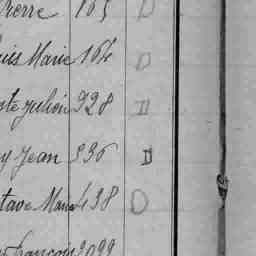 Pierre 165 D
uis Marie 164 D
ste Julien 928 D
y Jean 536 D
stave Marie 438 D
François 2099